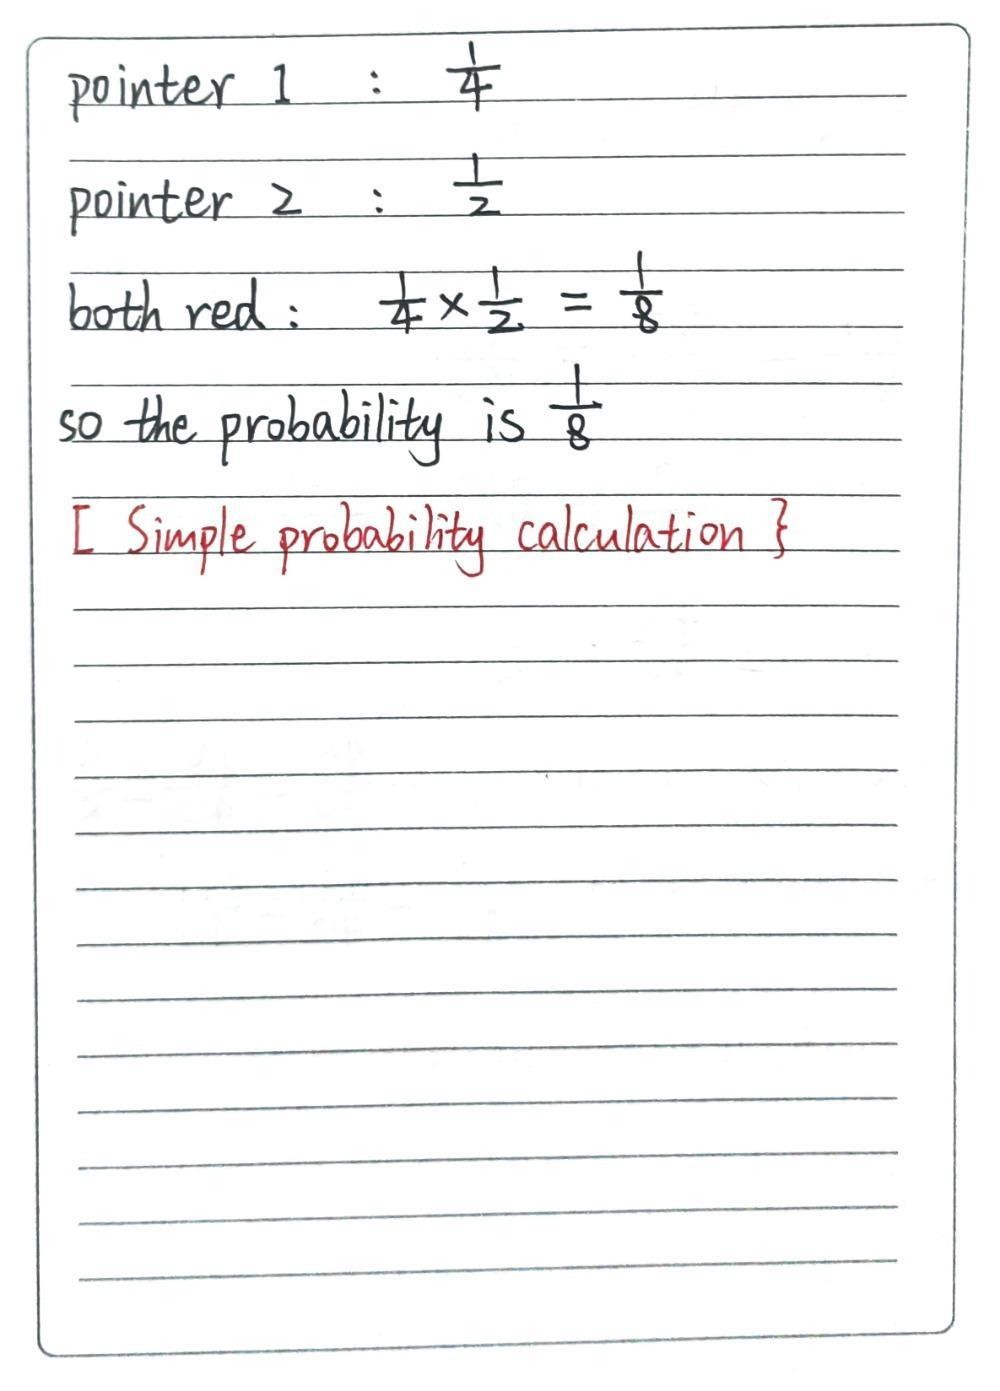 pointer 1 : 1/4
pointer 2 : 1/2
both red : 1/4 × 1/2 = 1/8
so the probability is 1/8
[ Simple probability calculation }